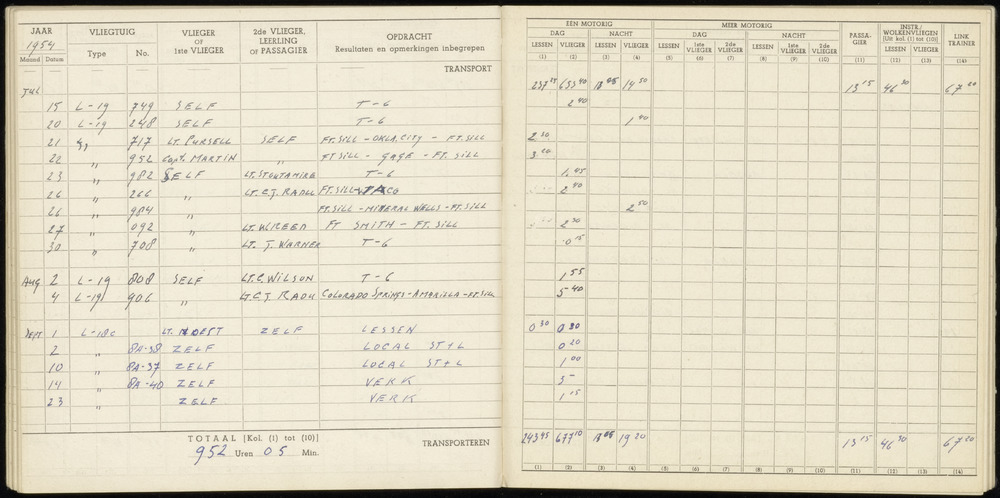 JAAR VLIEGTUIG VLIEGER OF 1ste VLIEGER 2de VLIEGER, LEERLING OF PASSAGIER OPDRACHT Resultaten en opmerkingen inbegrepen
1954
Maand Datum Type No.
TRANSPORT
JUL
15 L-19 749 SELF T-6
20 L-19 248 SELF T-6
21 " 717 LT. PURSELL SELF FT.SILL - OKLA.CITY - FT.SILL
22 " 952 CAPT. MARTIN " FT SILL - GAGE - FT. SILL
23 " 982 SELF LT. STOUTAMIRE T-6
26 " 266 " LT.C.J. RADU FT.SILL - WACO
26 " 984 " FT.SILL - MINERAL WELLS - FT.SILL
27 " 092 " FT SMITH - FT. SILL
30 " 708 " LT. J. WARNER T-6
AUG 2 L-19 808 SELF LT.C. WILSON T-6
4 L-19 906 " LT.C.J. RADU COLORADO SPRINGS - AMARILLA - FT.SILL
SEPT 1 L-18C ZELF LESSEN
2 " 8A-38 ZELF LOCAL ST+L
10 " 8A-37 ZELF LOCAL ST+L
14 " 8A-40 ZELF VERK
23 " ZELF VERK
TOTAAL [Kol. (1) tot (10)] TRANSPORTEREN
952 Uren 05 Min.
EEN MOTORIG MEER MOTORIG PASSA- GIER INSTR./ WOLKENVLIEGEN [Uit kol. (1) tot (10)] LINK TRAINER
DAG NACHT DAG NACHT
LESSEN VLIEGER LESSEN VLIEGER LESSEN 1ste VLIEGER 2de VLIEGER LESSEN 1ste VLIEGER 2de VLIEGER LESSEN VLIEGER
(1) (2) (3) (4) (5) (6) (7) (8) (9) (10) (11) (12) (13) (14)
653 40 18 05 14 50 13 15 46 30 67 20
2 40
1 40
2 30
3 20
1 45
2 40
2 50
2 30
0 15
1 55
5 40
0 30 0 20
0 20
1 00
5 -
1 15
243 45 677 10 18 05 19 20 13 15 46 30 67 20
(1) (2) (3) (4) (5) (6) (7) (8) (9) (10) (11) (12) (13) (14)